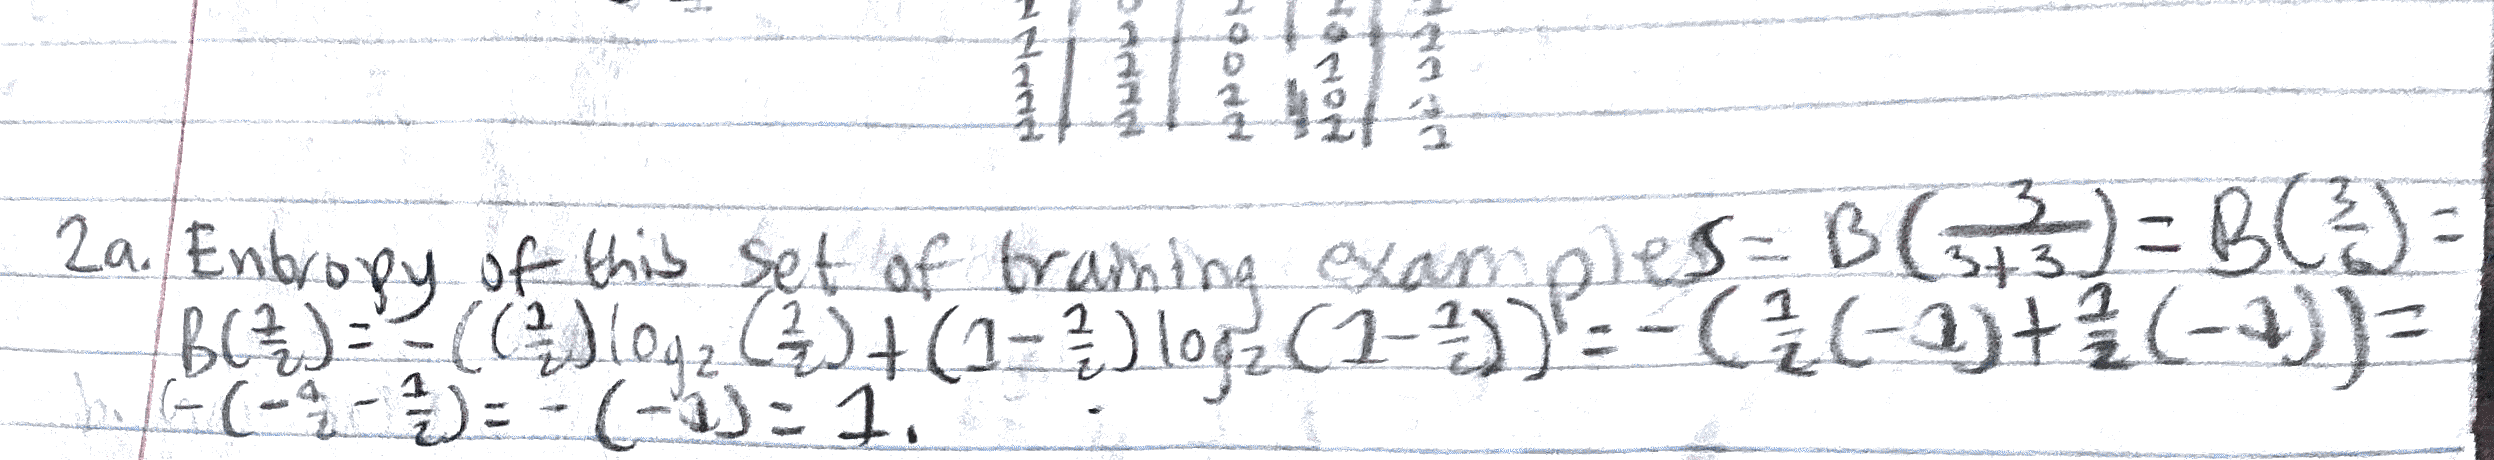 1 | 0 | 1 | 1 | 1
1 | 1 | 0 | 0 | 1
1 | 1 | 0 | 1 | 1
1 | 1 | 1 | 0 | 1
1 | 1 | 1 | 1 | 1
2a. Entropy of this set of training examples = B(3/(3+3)) = B(3/6) =
B(1/2) = -((1/2)log₂(1/2)+(1-1/2)log₂(1-1/2)) = -(1/2(-1)+1/2(-1)) =
-(-1/2-1/2) = -(-1) = 1.